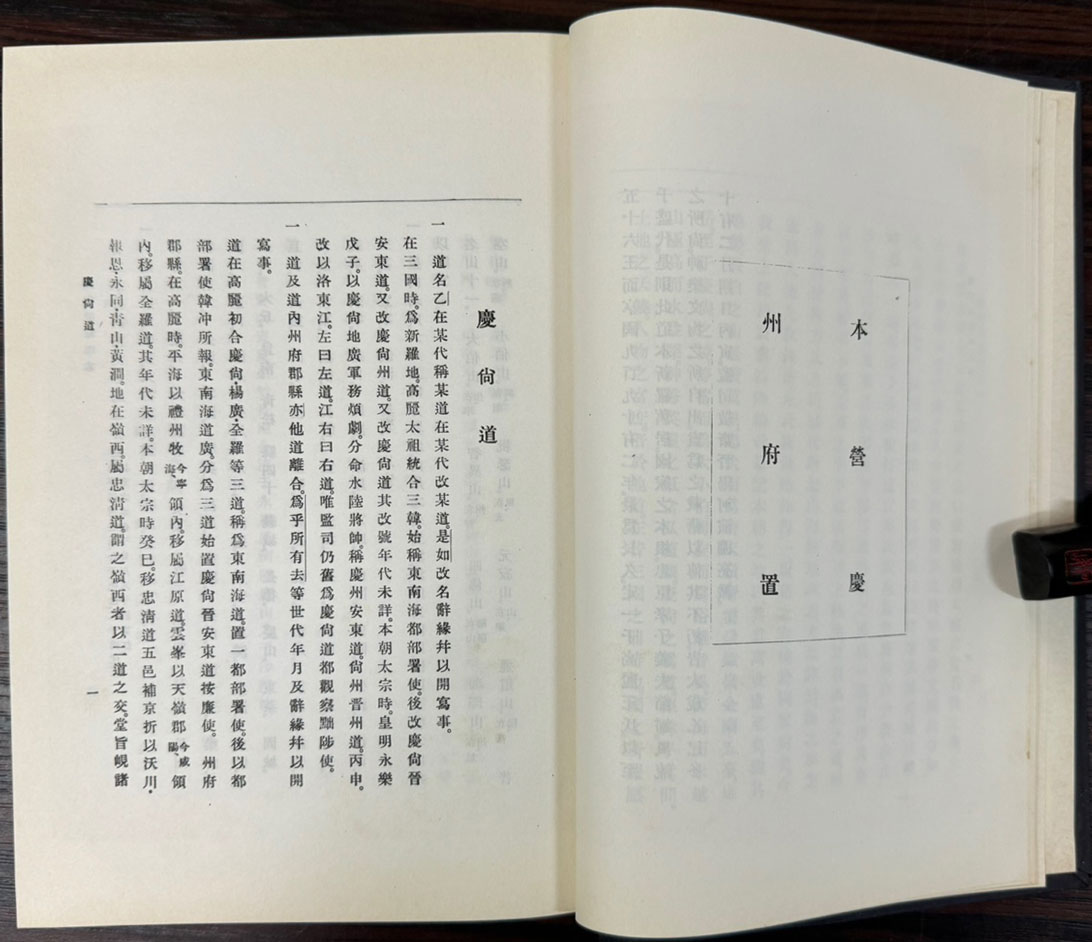 本營慶
州府置
慶尙道
一 道名乙在某代稱某道在某代改某道。是如改名辭緣幷以開寫事。
在三國時。爲新羅地。高麗太祖統合三韓。始稱東南海都部署使。後改慶尙晉
安東道。又改慶尙州道。又改慶尙道其改號年代未詳。本朝太宗時。皇明永樂
戊子。以慶尙地廣軍務煩劇。分命水陸將帥。稱慶州安東道。尙州晋州道。丙申。
改以洛東江。左曰左道。江右曰右道。唯監司仍舊爲慶尙道都觀察黜陟使。
一 道及道內州府郡縣亦他道離合。爲乎所有去等世代年月及辭緣幷以開
寫事。
道在高麗初合慶尙・楊廣・全羅等三道。稱爲東南海道。置一都部署使。後以都
部署使韓冲所報。東南海道廣。分爲三道始置慶尙晉安東道按廉使。 州府
郡縣。在高麗時。平海以禮州牧今寧海、領內移屬江原道。雲峯以天嶺郡今咸陽、領
內。移屬全羅道。其年代未詳。本朝太宗時癸巳。移忠淸道五邑補京折以沃川・
報恩・永同・靑山・黃澗。地在嶺西。屬忠淸道。謂之嶺西者以二道之交。堂旨峴諸
慶尙道
一